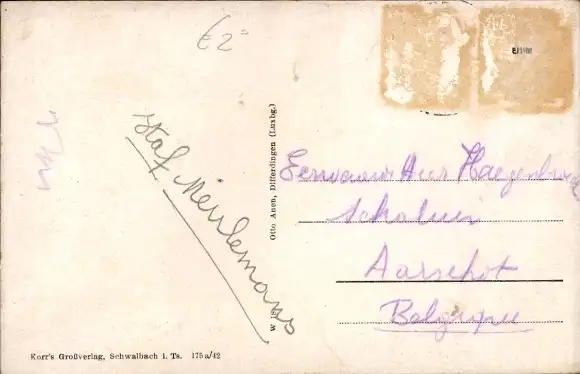 £2=
Staf Meulemans
Otto Anen, Differdingen (Luxbg.)
Eerwaarde Heer Haegenbroek
Aarschot
Belgique
Korr's Großverlag, Schwalbach i. Ts. 175 a/42